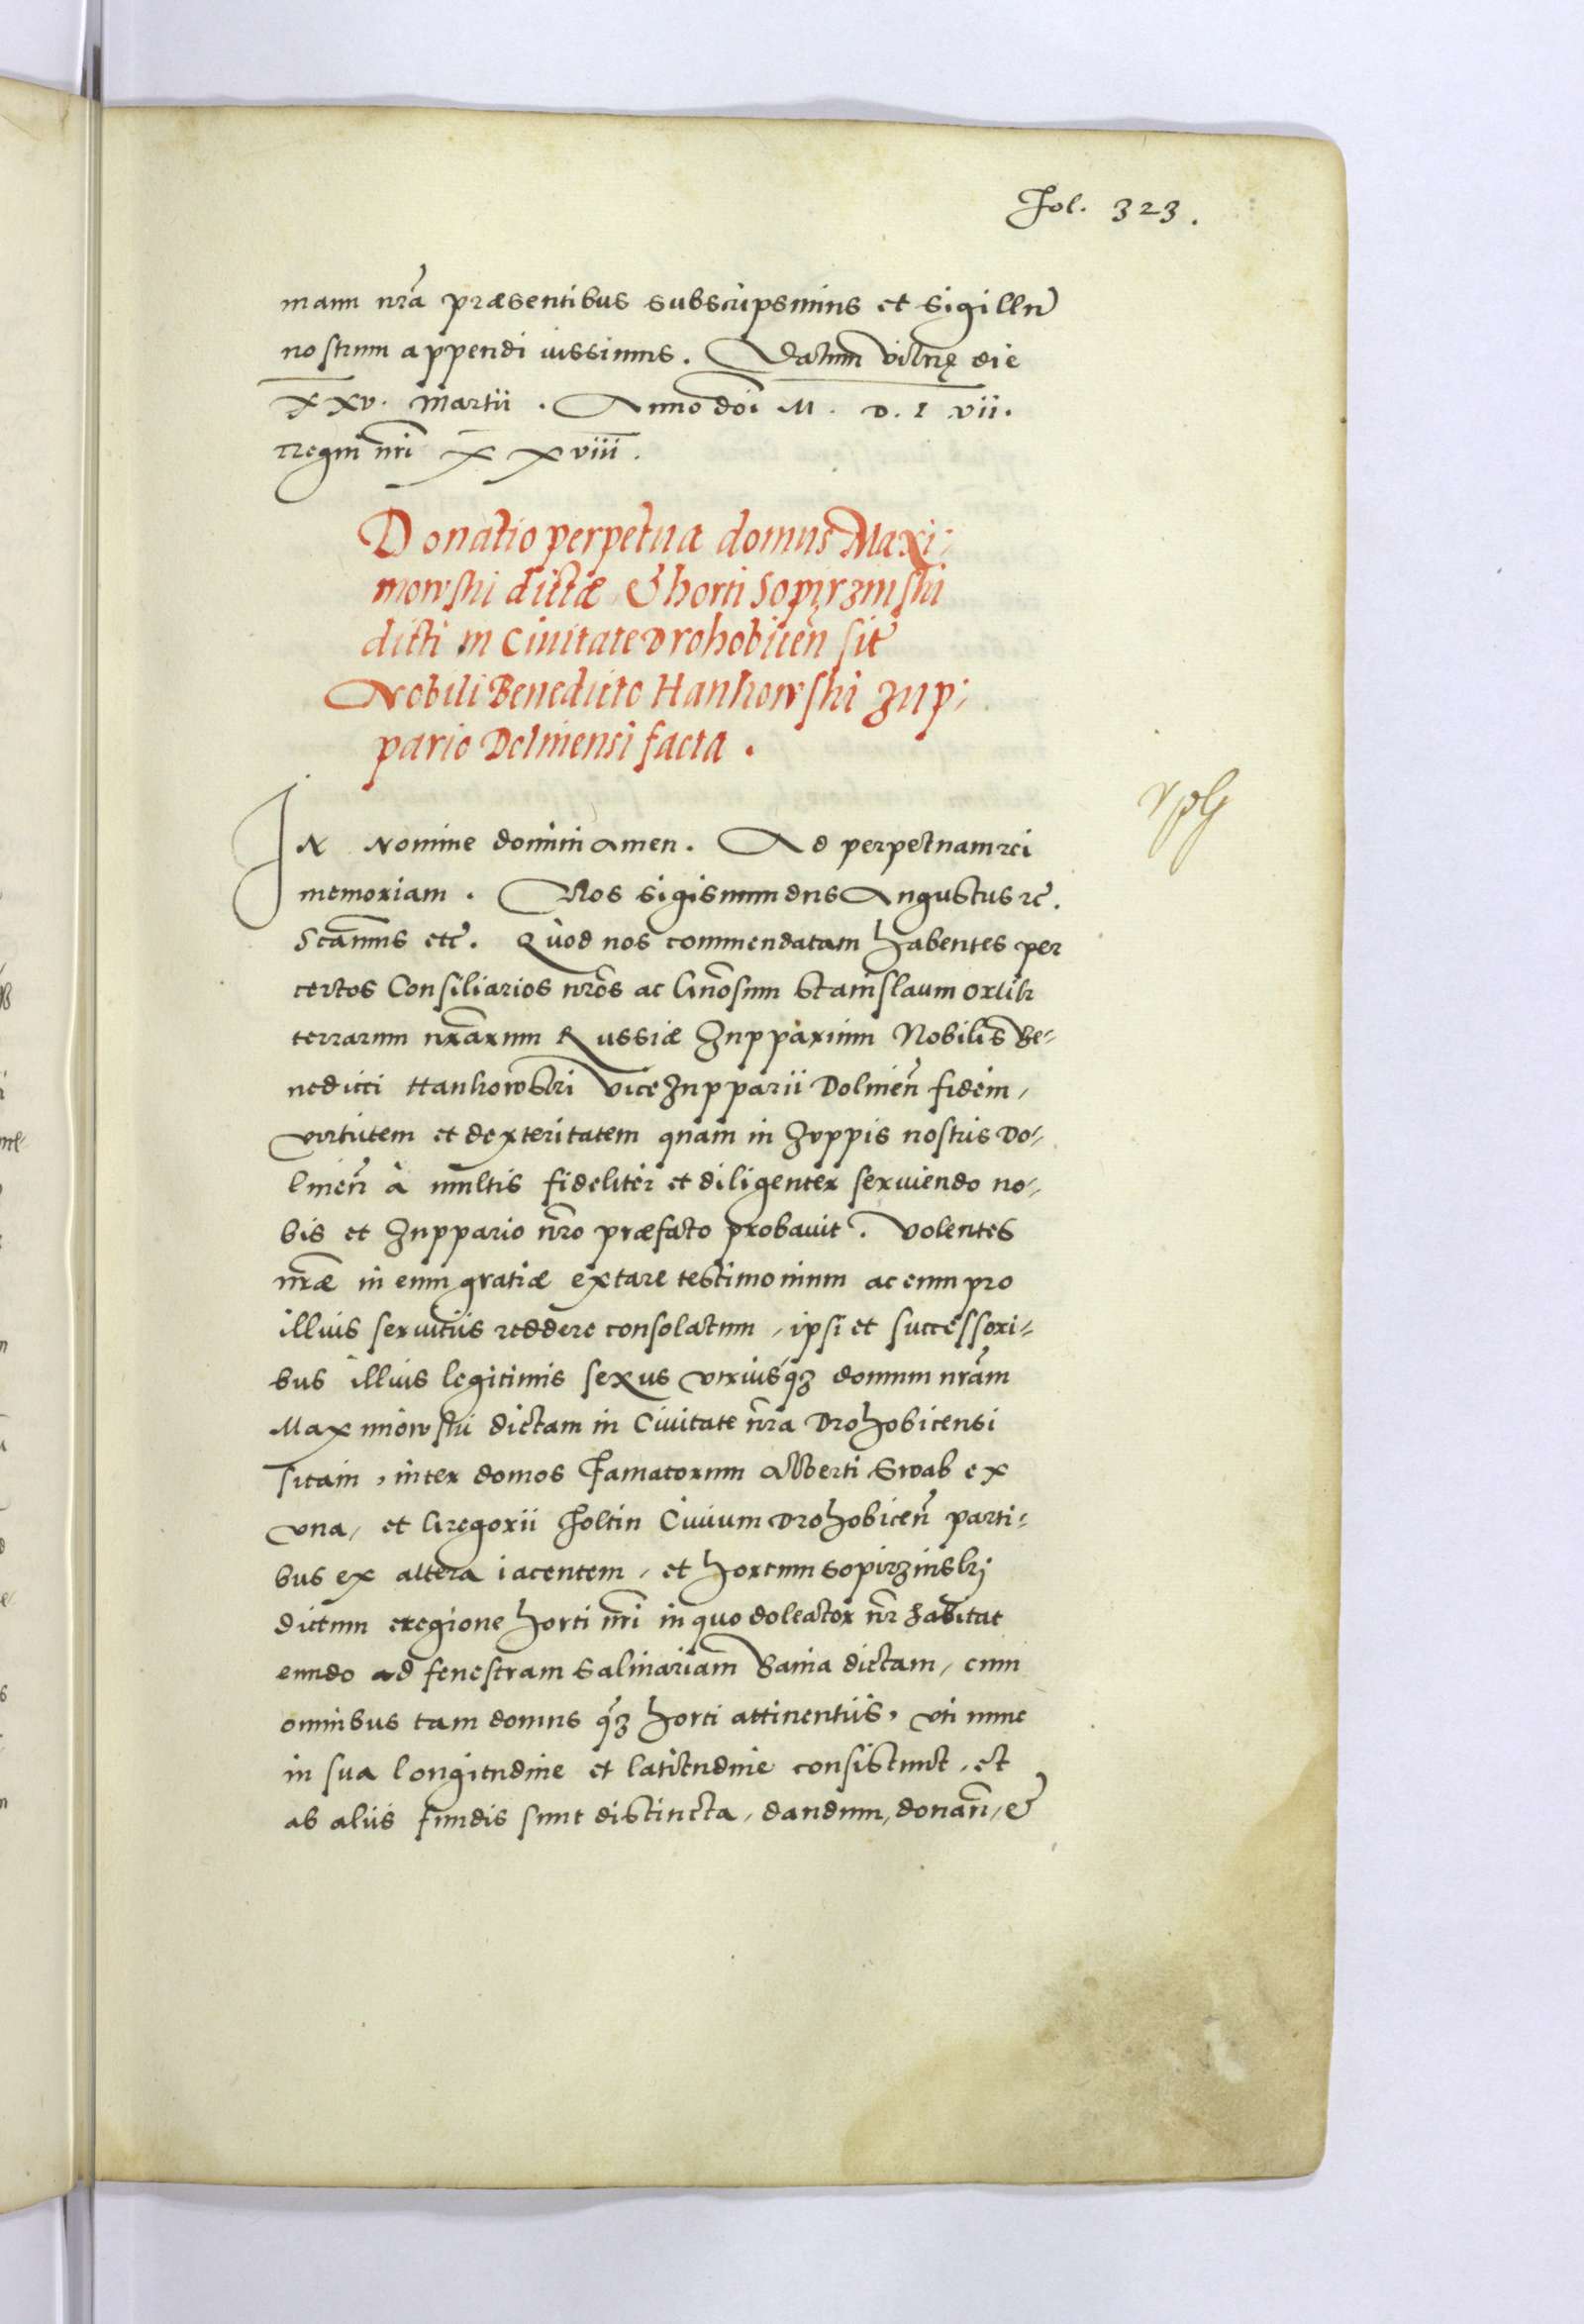 Fol. 323.
manu nrã præsentibus subscripsimus et sigillũ
nostrum appendi iussimus. Datum Vilnę die
xxv. Martii. Anno dñi M. D. L vii.
Regni nri xxviii.
Donatio perpetua domus Maxi-
mowski dictæ & horti Sopirzinski
dicti in Ciuitate Drohobiceñ sit̃
Nobili Benedicto Hankowski Zup-
pario Dolinensi facta.
IN Nomine domini amen. Ad perpetuam rei
memoriam. Nos Sigismundus Augustus rc̃.
Scãmus etc̃. Quod nos commendatam habentes per
certos Consiliarios nrõs ac Gnõsum Stanislaum
terrarum nrãrum Russiæ Zupparium Nobilis Be-
nedicti Hankowski Vice Zupparii Dolineñ fidem,
virtutem et dexteritatem quam in Zuppis nostris Do-
lineñ à multis fideliter et diligenter seruiendo no-
bis et Zuppario nrõ præfato probauit. Volentes
nrãæ in eum gratiæ extare testimonium ac eum pro
illius seruitiis reddere consolatum, ipsi et successori-
bus illius legitimis sexus vtriusq́ꝫ domum nrãm
Maximowski dictam in Ciuitate nrã Drohobicensi
sitam, inter domos Famatorum Alberti Swab ex
vna, et Gregorii Foltin Ciuium Drohobiceñ parti-
bus ex altera iacentem, et hortum Sopirzinski
dictum eregione horti nri in quo doleator nr̃ habitat
eundo ad fenestram Salinariam Bania dictam, cum
omnibus tam domus q̃ꝫ horti attinentiis, vti nunc
in sua longitudine et latitudine consistunt, et
ab aliis fundis sunt distincta, dandum, donañ, &